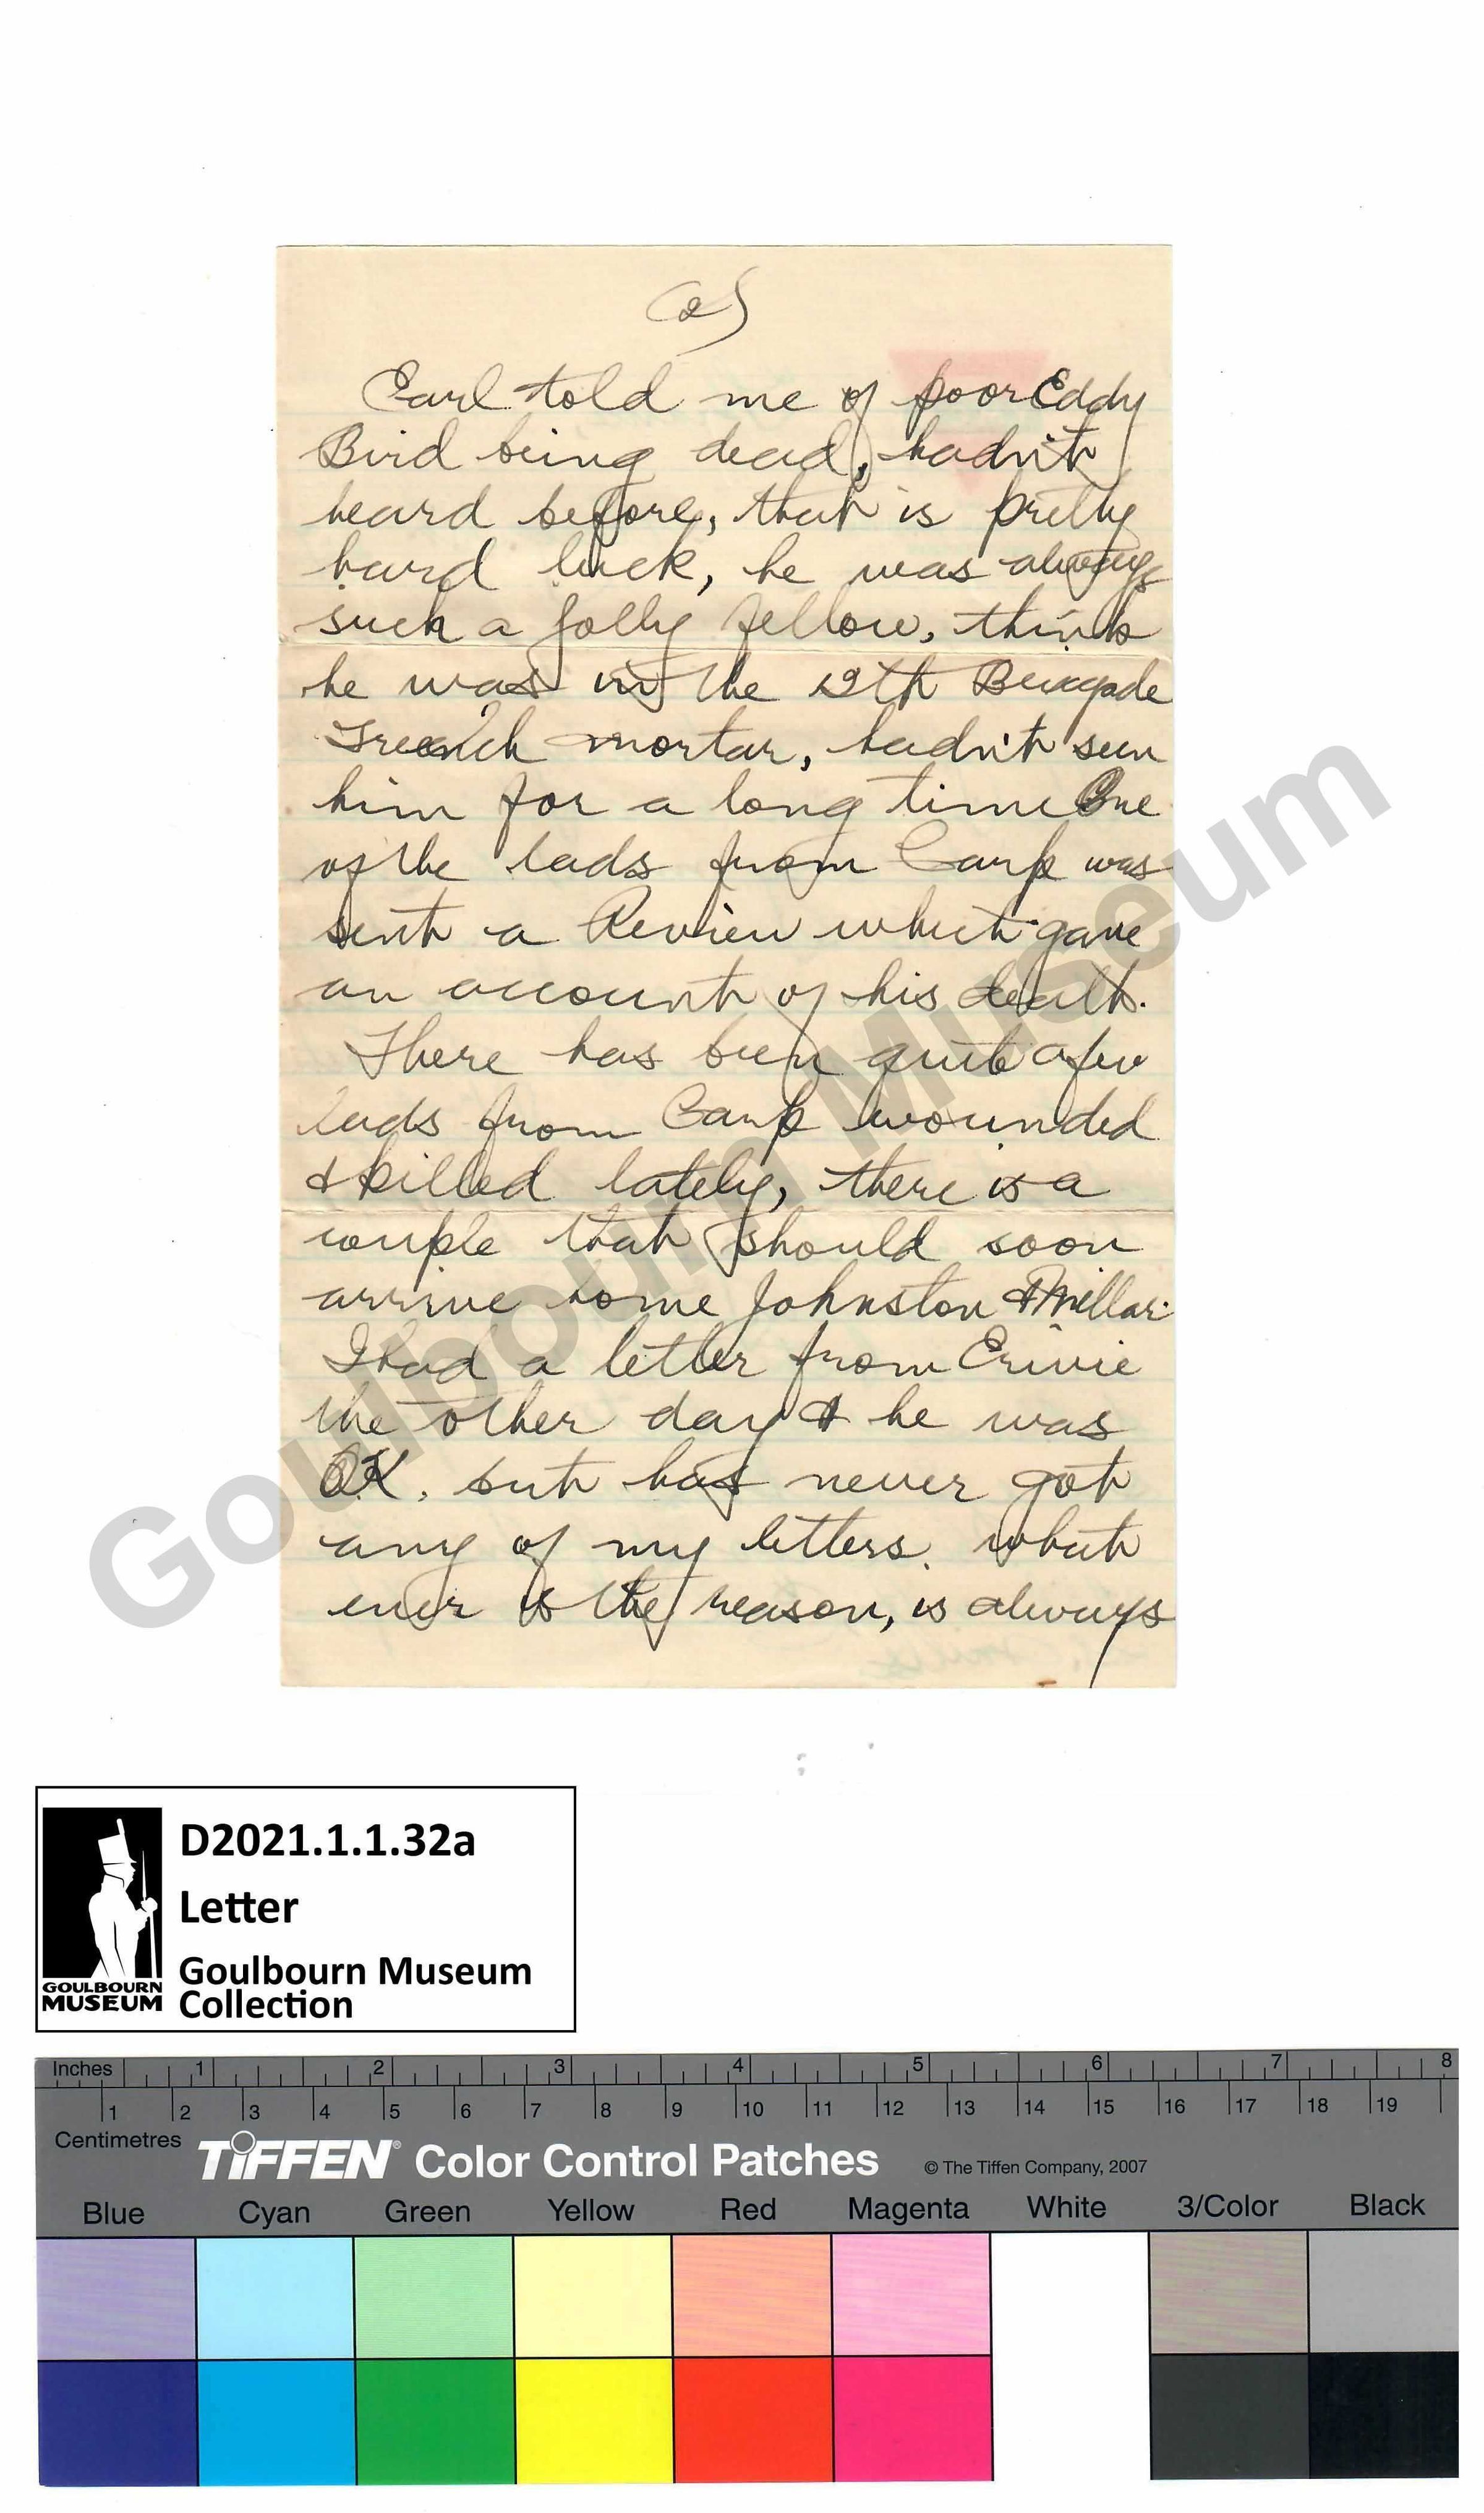 (2)
Earl told me of poor Eddy
Bird being dead, hadn't
heard before, that is pretty
hard luck, he was always
such a jolly fellow, think
he was in the 12th Brigade
Trench mortar, hadn't seen
him for a long time One
of the lads from Carp was
sent a Review which gave
an account of his death.
There has been quite a few
lads from Carp wounded
& killed lately, there is a
couple that should soon
arrive home Johnston & Millar
I had a letter from Ernie
the other day & he was
OK. but has never got
any of my letters. what
ever is the reason, is always
Goulbourn Museum
D2021.1.1.32a
Letter
Goulbourn Museum
Collection
GOULBOURN
MUSEUM
Inches 1 2 3 4 5 6 7 8
1 2 3 4 5 6 7 8 9 10 11 12 13 14 15 16 17 18 19
Centimetres
TIFFEN® Color Control Patches © The Tiffen Company, 2007
Blue Cyan Green Yellow Red Magenta White 3/Color Black